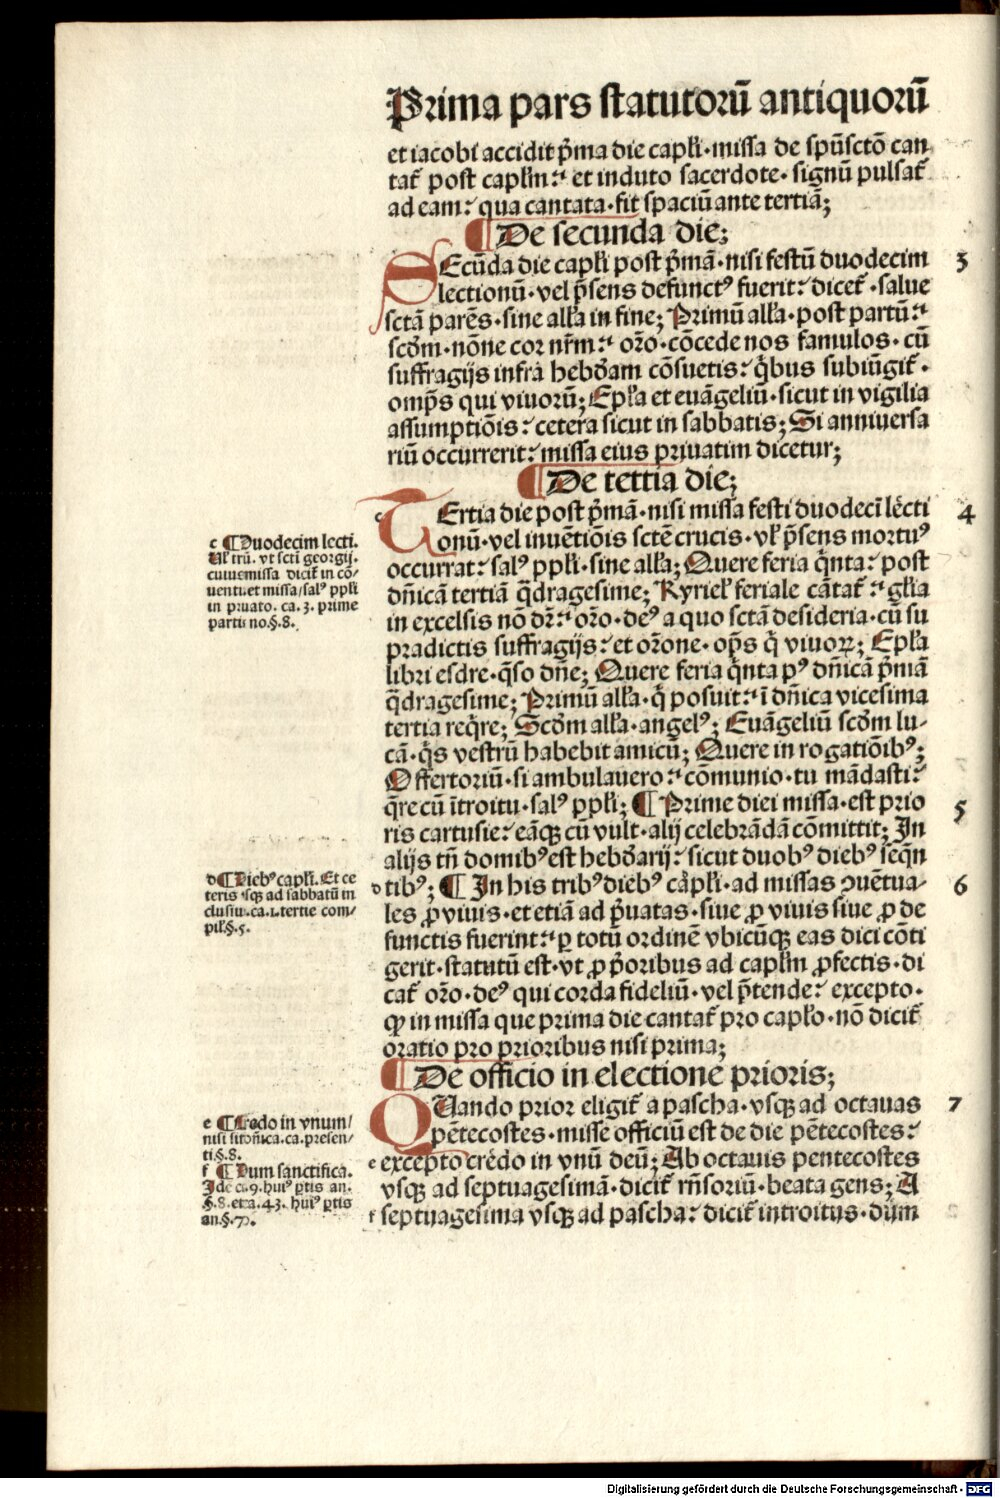 Prima pars statutorū antiquorū
et iacobi accidit p̄ma die capłi·missa de spūsctō can
tať post capłm:· et induto sacerdote· signū pulsať
ad eam: qua cantata·fit spaciū ante tertiā;
¶De secunda die;
SEcūda die capłi post p̄mā·nisi festū duodecim 3
lectionū·vel p̄sens defunctꝰ fuerit: diceť·salue
sctā parēs·sine ałła in fine; Primū ałła·post partū:·
scđm·nōne cor nr̄m:· oŕo·cōcede nos famulos· cū
suffragijs infra hebđam cōsuetis: q̄bus subiūgiť·
omp̄s qui viuorū; Epła et euāgeliū·sicut in vigilia
assumptiōis: cetera sicut in sabbatis; Si anniuersa
riū occurrerit: missa eius priuatim dicetur;
¶De tertia die;
TErtia die post p̄mā·nisi missa festi duodecī lēcti 4
onū·vel inuētiōis sctē crucis· vł p̄sens mortuꝰ
occurrat: salꝰ ppłi·sine ałła; Quere feria q̄nta: post
dn̄icā tertiā q̄dragesime; Kyrieł feriale cātať:· głia
in excelsis nō dr̄:· oŕo·deꝰ a quo sctā desideria·cū su
pradictis suffragijs: et oŕone·op̄s q̄ viuoꝝ; Epła
libri esdre·q̄so dn̄e; Quere feria q̄nta pꝰ dn̄icā p̄mā
q̄dragesime; Primū ałła·q̄ posuit:· ī dn̄ica vicesima
tertia reqr̄e; Scđm ałła·angelꝰ; Euāgeliū scđm lu-
cā·q̄s vestrū habebit amicū; Quere in rogatiōibꝰ;
Offertoriū·si ambulauero:· cōmunio·tu mādasti:
q̄re cū ītroitu·salꝰ ppłi; ¶ Prime diei missa·est prio 5
ris cartusie: eāqꝫ cū vult·alij celebrādā cōmittit; In
alijs tn̄ domibꝰ est hebđarij: sicut duobꝰ diebꝰ seq̄n
d tibꝰ; ¶ In his tribꝰ diebꝰ capłi·ad missas ꝯuētua- 6
les ꝓ viuis·et etiā ad p̄uatas·siue ꝓ viuis siue ꝓ de
functis fuerint:· ꝑ totū ordinē vbicūqꝫ eas dici cōti
gerit·statutū est·vt ꝓ p̄oribus ad capłm ꝓfectis·di
cať oŕo·deꝰ qui corda fideliū·vel p̄tende: excepto·
ꝙ in missa que prima die cantať pro capło·nō diciť
oratio pro prioribus nisi prima;
¶De officio in electione prioris;
QUando prior eligiť a pascha·vsqꝫ ad octauas 7
pētecostes·misse officiū est de die pētecostes:
e excepto crēdo in vnū deū; Ab octauis pentecostes
vsqꝫ ad septuagesimā·diciť rn̄soriū·beata gens; A
f septuagesima vsqꝫ ad pascha: diciť introitus·dum
c ¶Duodecim lecti.
Ał trū. vt scti georgij.
cuiuemissa diciť in cō-
uentu:et missa/salꝰ ppłi
in priuato. ca. 3. prime
partis no.§.8.
d¶Diebꝰ capłi. Et ce
teris ·sqꝫ ad sabbatū in
clusiu.ca.1.tertie com-
pił.§.5.
e ¶Credo in vnum/
nisi sit dn̄ica.ca.presen-
ti.§.8.
f ¶ Dum sanctifica.
Idē c.9.huiꝰ ptis an.
§.8.et.a.43. huiꝰ ptis
an.§.7.
Digitalisierung gefördert durch die Deutsche Forschungsgemeinschaft - DFG